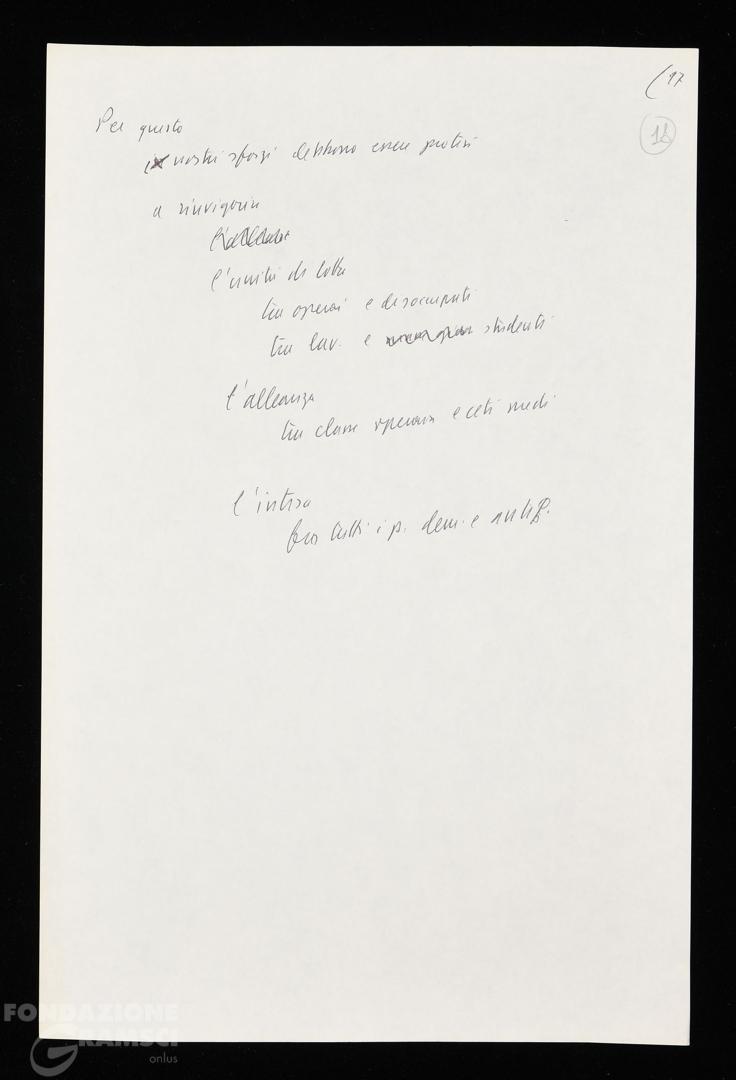 (17
18
Per questo
i nostri sforzi debbono essere protesi
a rinvigorire
l'unità di lotta
tra operai e disoccupati
tra lav. e studenti
l'alleanza
tra classe operaia e ceti medi
l'intesa
fra tutti i p. dem. e antif.
FONDAZIONE
GRAMSCI
onlus